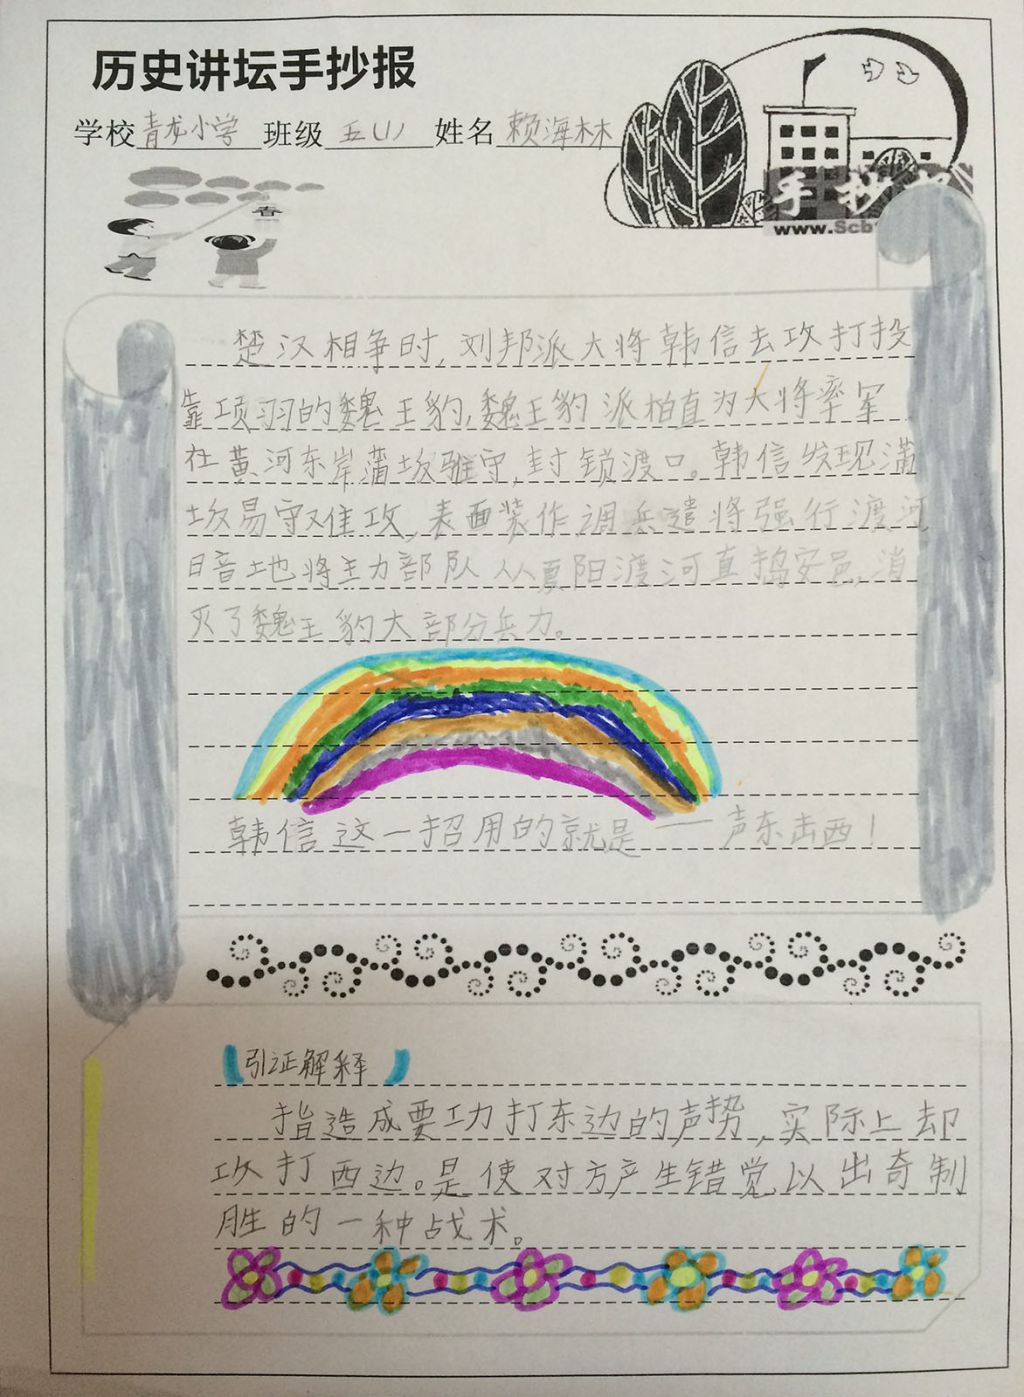 历史讲坛手抄报
学校 青龙小学 班级 五(1) 姓名 赖海林
春
手抄报
www.Scb
楚汉相争时,刘邦派大将韩信去攻打投
靠项羽的魏王豹,魏王豹派柏直为大将率军
在黄河东岸蒲坂驻守,封锁渡口。韩信发现蒲
坂易守难攻,表面装作调兵遣将强行渡河
暗地将主力部队从夏阳渡河直捣安邑,消
灭了魏王豹大部分兵力。
韩信这一招用的就是——声东击西!
【引证解释】
指造成要攻打东边的声势,实际上却
攻打西边。是使对方产生错觉以出奇制
胜的一种战术。